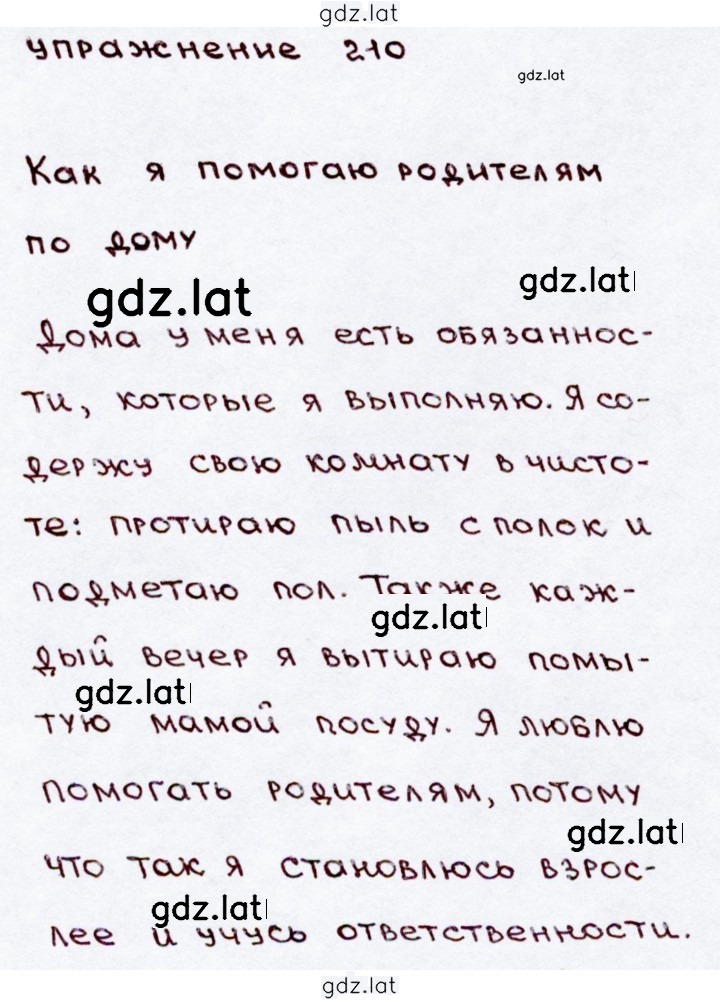 gdz.lat
упражнение 210
gdz.lat
Как я помогаю родителям
по дому
gdz.lat
gdz.lat
Дома у меня есть обязаннос-
ти, которые я выполняю. Я со-
держу свою комнату в чисто-
те: протираю пыль с полок и
подметаю пол. Также каж-
gdz.lat
дый вечер я вытираю помы-
gdz.lat
тую мамой посуду. Я люблю
помогать родителям, потому
gdz.lat
что так я становлюсь взрос-
gdz.lat
лее и учусь ответственности.
gdz.lat